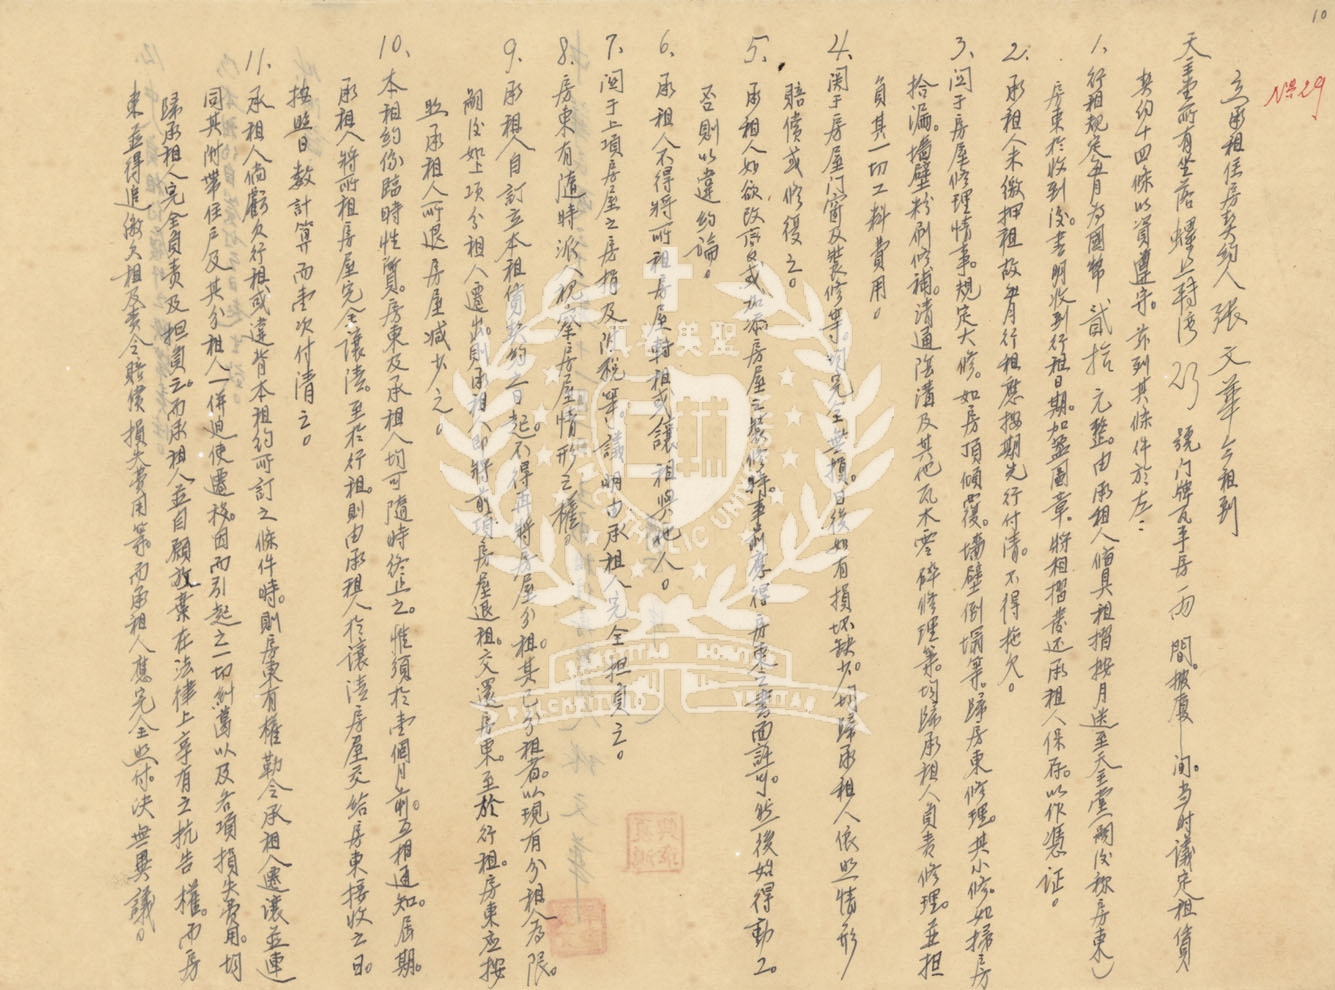 10
No 29
立承租住房契約人張文華今租到
天主堂所有坐落螺螄轉灣 23 號門牌瓦平房兩間。披廈 間。當时議定租賃
契約十四條以資遵守。茲列其條件於左:
1. 行租規定每月為國幣貳拾元整。由承租人備具租摺按月送至天主堂(嗣後称房東)
房東於收到後。書明收到行租日期。加蓋圖章。將租摺發还承租人保存。以作憑证。
2. 承租人未繳押租故每月行租應按期先行付清。不得拖欠。
3. 関于房屋修理情事。規定大修。如房頂傾覆。墻壁倒塌等。歸房東修理。其小修。如掃房
拾漏。墻壁粉刷修補。清通陰溝及其他瓦木零碎修理等。均歸承租人負责修理。並担
負其一切工料費用。
4. 関于房屋门窗及裝修等。均完全無損。日後如有損坏缺少。均歸承租人依照情形
賠償或修復之。
5. 承租人如欲改 或加添房屋之裝修時。事前應得房東之書面許可。然後始得動工。
否則以違約論。
6. 承租人不得將所租房屋轉租或讓租與他人。
7. 関于上項房屋之房捐及附稅等。議明由承租人完全担負之。
8. 房東有隨時派人視察房屋情形之權。
9. 承租人自訂立本租賃契約之日起。不得再將房屋分租。其已分租者。以現有分租人為限。
嗣後如上項分租人遷出。則承租人即將所 項房屋退租。交還房東。至於行租。房東應按
照承租人所退房屋減少之。
10. 本租約係臨時性質。房東及承租人均可隨時終止之。惟須於壹個月前。互相通知。屆期。
承租人將所租房屋完全讓清。至於行租。則由承租人於讓清房屋交給房東接收之日。
按照日數計算而壹次付清之。
11. 承租人倘虧欠行租或違背本租約所訂之條件時。則房東有權勒令承租人遷讓並連
同其附帶住戶及其分租人一併迫使遷移。因而引起之一切糾葛以及各項損失費用。均
歸承租人完全負责及担負之。而承租人並自願放棄在法律上享有之抗告權。而房
東並得追繳欠租及责令賠償損失費用等而承租人應完全照付。决無異議。